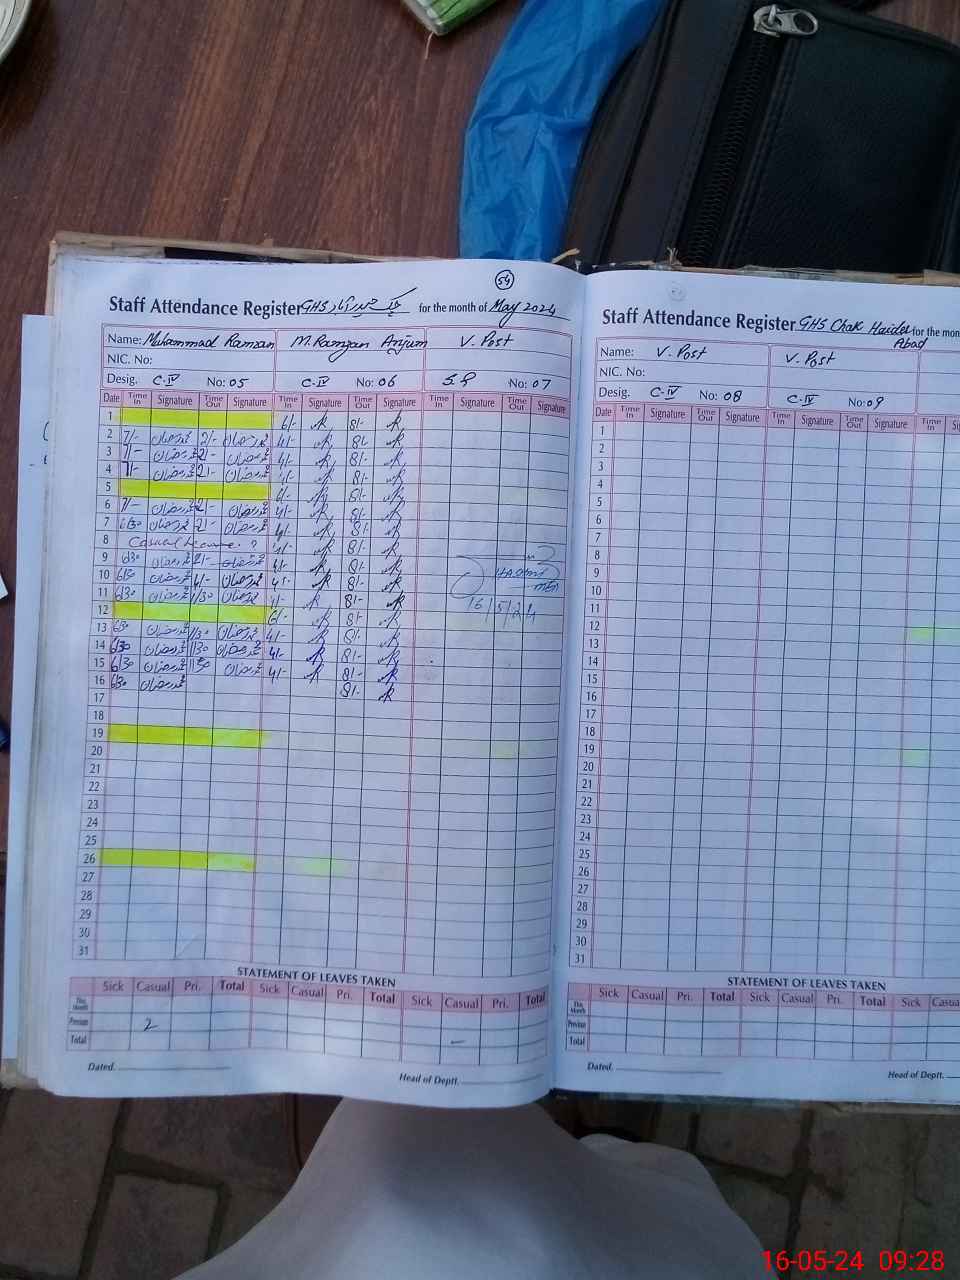 54
Staff Attendance Register GHS چک حیدر آباد for the month of May 2024
Name: Muhammad Ramzan M. Ramzan Anjum V. Post
NIC. No:
Desig. C-IV No: 05 C-IV No: 06 S.P No: 07
Date Time In Signature Time Out Signature Time In Signature Time Out Signature Time In Signature Time Out Signature
1 6/- 8/-
2 7/- محمد رمضان 2/- محمد رمضان 4/- 8/-
3 7/- محمد رمضان 2/- محمد رمضان 4/- 8/-
4 7/- محمد رمضان 2/- محمد رمضان 4/- 8/-
5 6/- 8/-
6 7/- محمد رمضان 2/- محمد رمضان 4/- 8/-
7 6/30 محمد رمضان 2/- محمد رمضان 4/- 8/-
8 Casual 4/- 8/-
9 6/30 محمد رمضان 2/- محمد رمضان 4/- 8/-
10 6/30 محمد رمضان محمد رمضان 4/- 8/-
11 6/30 محمد رمضان 1/30 محمد رمضان 4/- 8/-
12 6/- 8/-
13 6/30 محمد رمضان 1/30 محمد رمضان 4/- 8/-
14 6/30 محمد رمضان 1/30 محمد رمضان 4/- 8/-
15 6/30 محمد رمضان 1/30 محمد رمضان 4/- 8/-
16 6/30 محمد رمضان 8/-
17
18
19
20
21
22
23
24
25
26
27
28
29
30
31
16/5/24
STATEMENT OF LEAVES TAKEN
Sick Casual Pri. Total Sick Casual Pri. Total Sick Casual Pri. Total
This Month
Previous 2
Total –
Dated.
Head of Deptt.
Staff Attendance Register GHS Chak Haider Abad for the mon
Name: V. Post V. Post
NIC. No:
Desig. C-IV No: 08 C-IV No: 09
Date Time In Signature Time Out Signature Time In Signature Time Out Signature Time In Si
1
2
3
4
5
6
7
8
9
10
11
12
13
14
15
16
17
18
19
20
21
22
23
24
25
26
27
28
29
30
31
STATEMENT OF LEAVES TAKEN
Sick Casual Pri. Total Sick Casual Pri. Total Sick Casua
This Month
Previous
Total
Dated.
Head of Deptt.
16-05-24 09:28